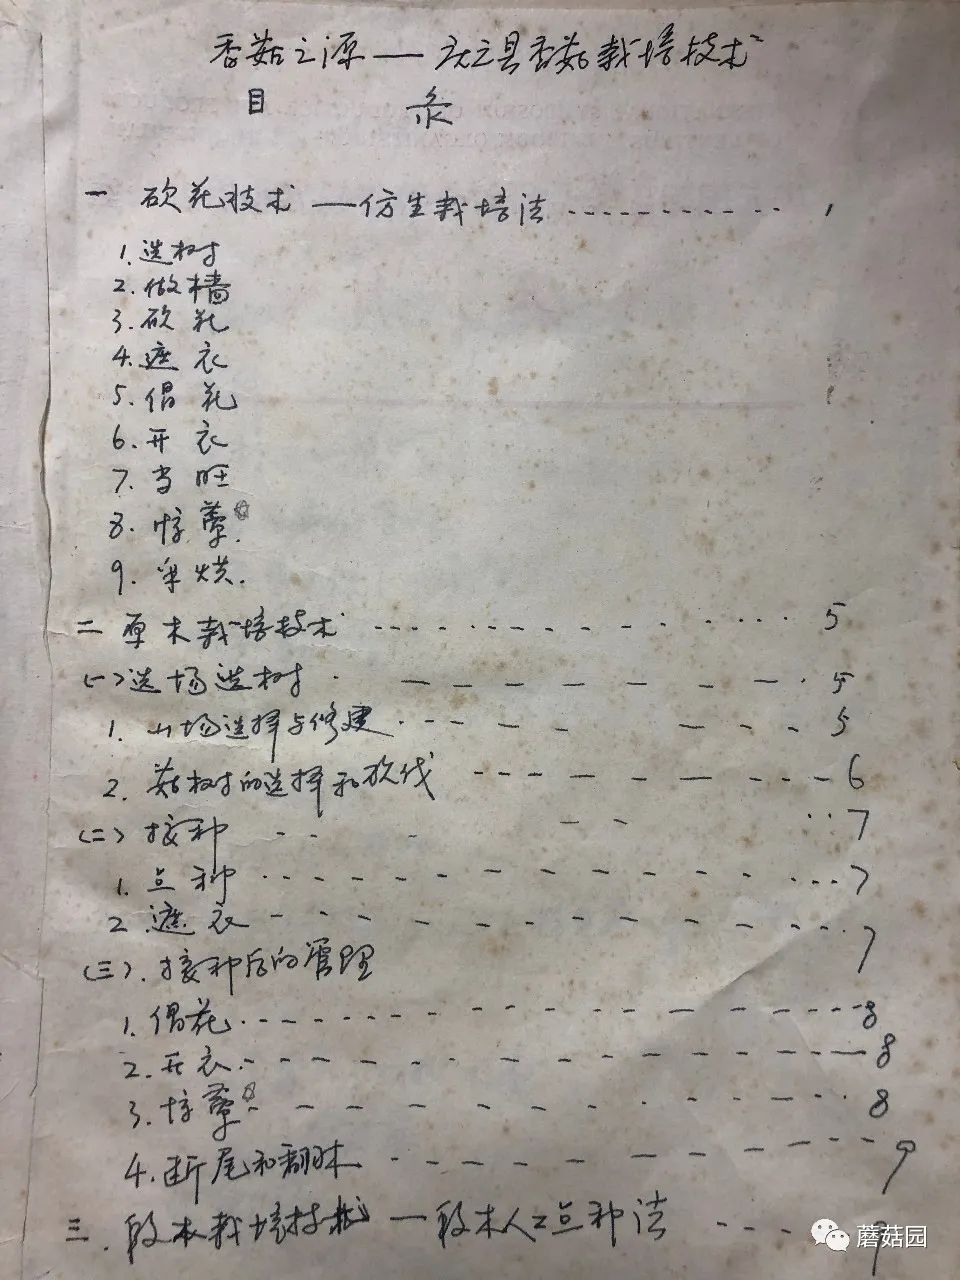 香菇之源——庆元县香菇栽培技术
目 录
一 砍花技术 ——仿生栽培法 ............ 1
1. 选树
2. 做樯
3. 砍花
4. 遮衣
5. 倡花
6. 开衣
7. 当旺
8. 惊蕈.
9. 采烘.
二 原木栽培技术 ............ 5
(一) 选场选树 ............ 5
1. 山场选择与修建 ............ 5
2. 菇树的选择和砍伐 ............ 6
(二) 接种 ............ 7
1. 点种 ............ 7
2 遮衣 ............ 7
(三). 接种后的管理
1. 倡花 ............ 8
2. 开衣 ............ 8
3. 惊蕈 ............ 8
4. 断尾和翻木 ............ 9
三. 段木栽培技术 —段木人工点种法 ............ 9
蘑菇园